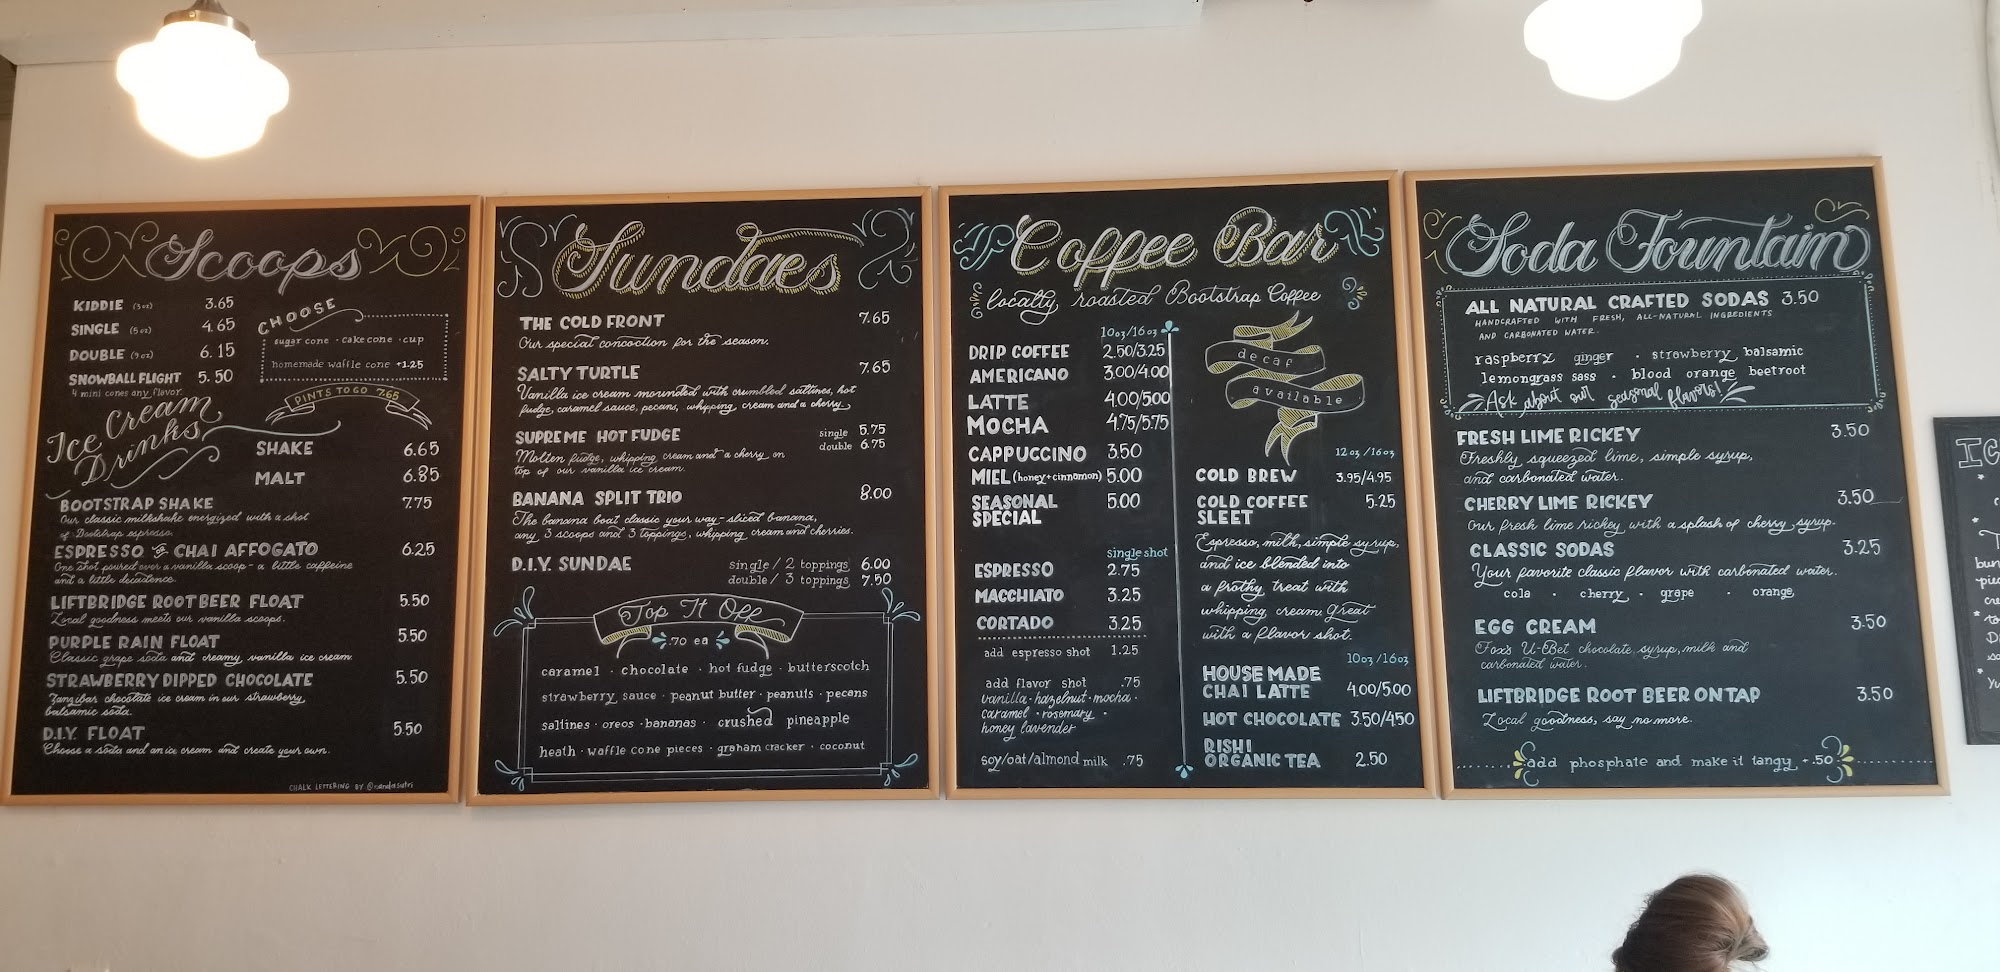 Scoops
KIDDIE (3oz) 3.65
SINGLE (5oz) 4.65
DOUBLE (9oz) 6.15
SNOWBALL FLIGHT 5.50
4 mini cones any flavor.
CHOOSE
sugar cone · cake cone · cup
homemade waffle cone +1.25
PINTS TO GO 7.65
Ice Cream
Drinks
SHAKE 6.65
MALT 6.85
BOOTSTRAP SHAKE 7.75
Our classic milkshake energized with a shot
of Bootstrap espresso.
ESPRESSO OR CHAI AFFOGATO 6.25
One shot poured over a vanilla scoop - a little caffeine
and a little decadence.
LIFTBRIDGE ROOT BEER FLOAT 5.50
Local goodness meets our vanilla scoops.
PURPLE RAIN FLOAT 5.50
Classic grape soda and creamy vanilla ice cream.
STRAWBERRY DIPPED CHOCOLATE 5.50
Zanzibar chocolate ice cream in our strawberry
balsamic soda.
D.I.Y. FLOAT 5.50
Choose a soda and an ice cream and create your own.
CHALK LETTERING BY
Sundaes
THE COLD FRONT 7.65
Our special concoction for the season.
SALTY TURTLE 7.65
Vanilla ice cream mounded with crumbled saltines, hot
fudge, caramel sauce, pecans, whipping cream and a cherry.
SUPREME HOT FUDGE single 5.75
double 6.75
Molten fudge, whipping cream and a cherry on
top of our vanilla ice cream.
BANANA SPLIT TRIO 8.00
The banana boat classic your way - sliced banana,
any 3 scoops and 3 toppings, whipping cream and cherries.
D.I.Y. SUNDAE single / 2 toppings 6.00
double / 3 toppings 7.50
Top It Off
.70 ea
caramel · chocolate · hot fudge · butterscotch
strawberry sauce · peanut butter · peanuts · pecans
saltines · oreos · bananas · crushed pineapple
heath · waffle cone pieces · graham cracker · coconut
Coffee Bar
locally roasted Bootstrap Coffee
10oz/16oz
DRIP COFFEE 2.50/3.25
AMERICANO 3.00/4.00
LATTE 4.00/5.00
MOCHA 4.75/5.75
CAPPUCCINO 3.50
MIEL (honey+cinnamon) 5.00
SEASONAL 5.00
SPECIAL
single shot
ESPRESSO 2.75
MACCHIATO 3.25
CORTADO 3.25
add espresso shot 1.25
add flavor shot .75
vanilla · hazelnut · mocha ·
caramel · rosemary ·
honey lavender
soy/oat/almond milk .75
decaf
available
12oz/16oz
COLD BREW 3.95/4.95
COLD COFFEE 5.25
SLEET
Espresso, milk, simple syrup,
and ice blended into
a frothy treat with
whipping cream. Great
with a flavor shot.
10oz/16oz
HOUSE MADE
CHAI LATTE 4.00/5.00
HOT CHOCOLATE 3.50/4.50
RISHI
ORGANIC TEA 2.50
Soda Fountain
ALL NATURAL CRAFTED SODAS 3.50
HANDCRAFTED WITH FRESH, ALL-NATURAL INGREDIENTS
AND CARBONATED WATER.
raspberry ginger · strawberry balsamic
lemongrass sass · blood orange beetroot
Ask about our seasonal flavors!
FRESH LIME RICKEY 3.50
Freshly squeezed lime, simple syrup,
and carbonated water.
CHERRY LIME RICKEY 3.50
Our fresh lime rickey with a splash of cherry syrup.
CLASSIC SODAS 3.25
Your favorite classic flavor with carbonated water.
cola · cherry · grape · orange
EGG CREAM 3.50
Fox's U-Bet chocolate syrup, milk and
carbonated water.
LIFTBRIDGE ROOT BEER ON TAP 3.50
Local goodness, say no more.
add phosphate and make it tangy +.50